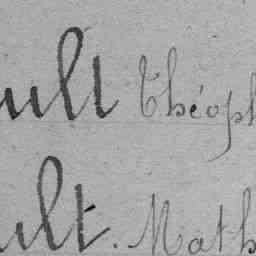 ult Théoph
ult. Math